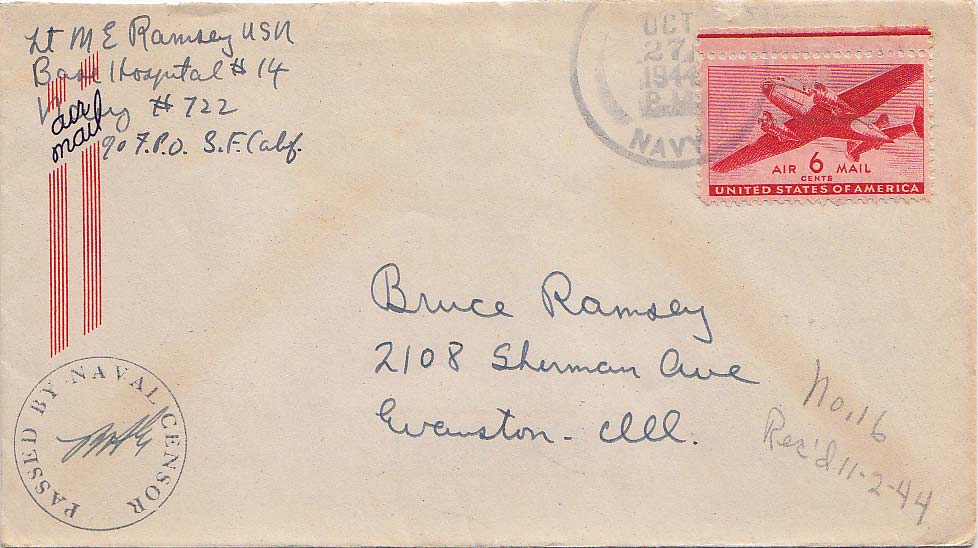 Lt M E Ramsey USN
Base Hospital # 14
Navy # 722
℅ F.P.O. S.F. Calif.
air
mail
OCT
27
1944
P.M.
NAVY
AIR 6 MAIL
CENTS
UNITED STATES OF AMERICA
Bruce Ramsey
2108 Sherman Ave
Evanston - Ill.
No. 16
Rec'd 11-2-44
PASSED BY NAVAL CENSOR